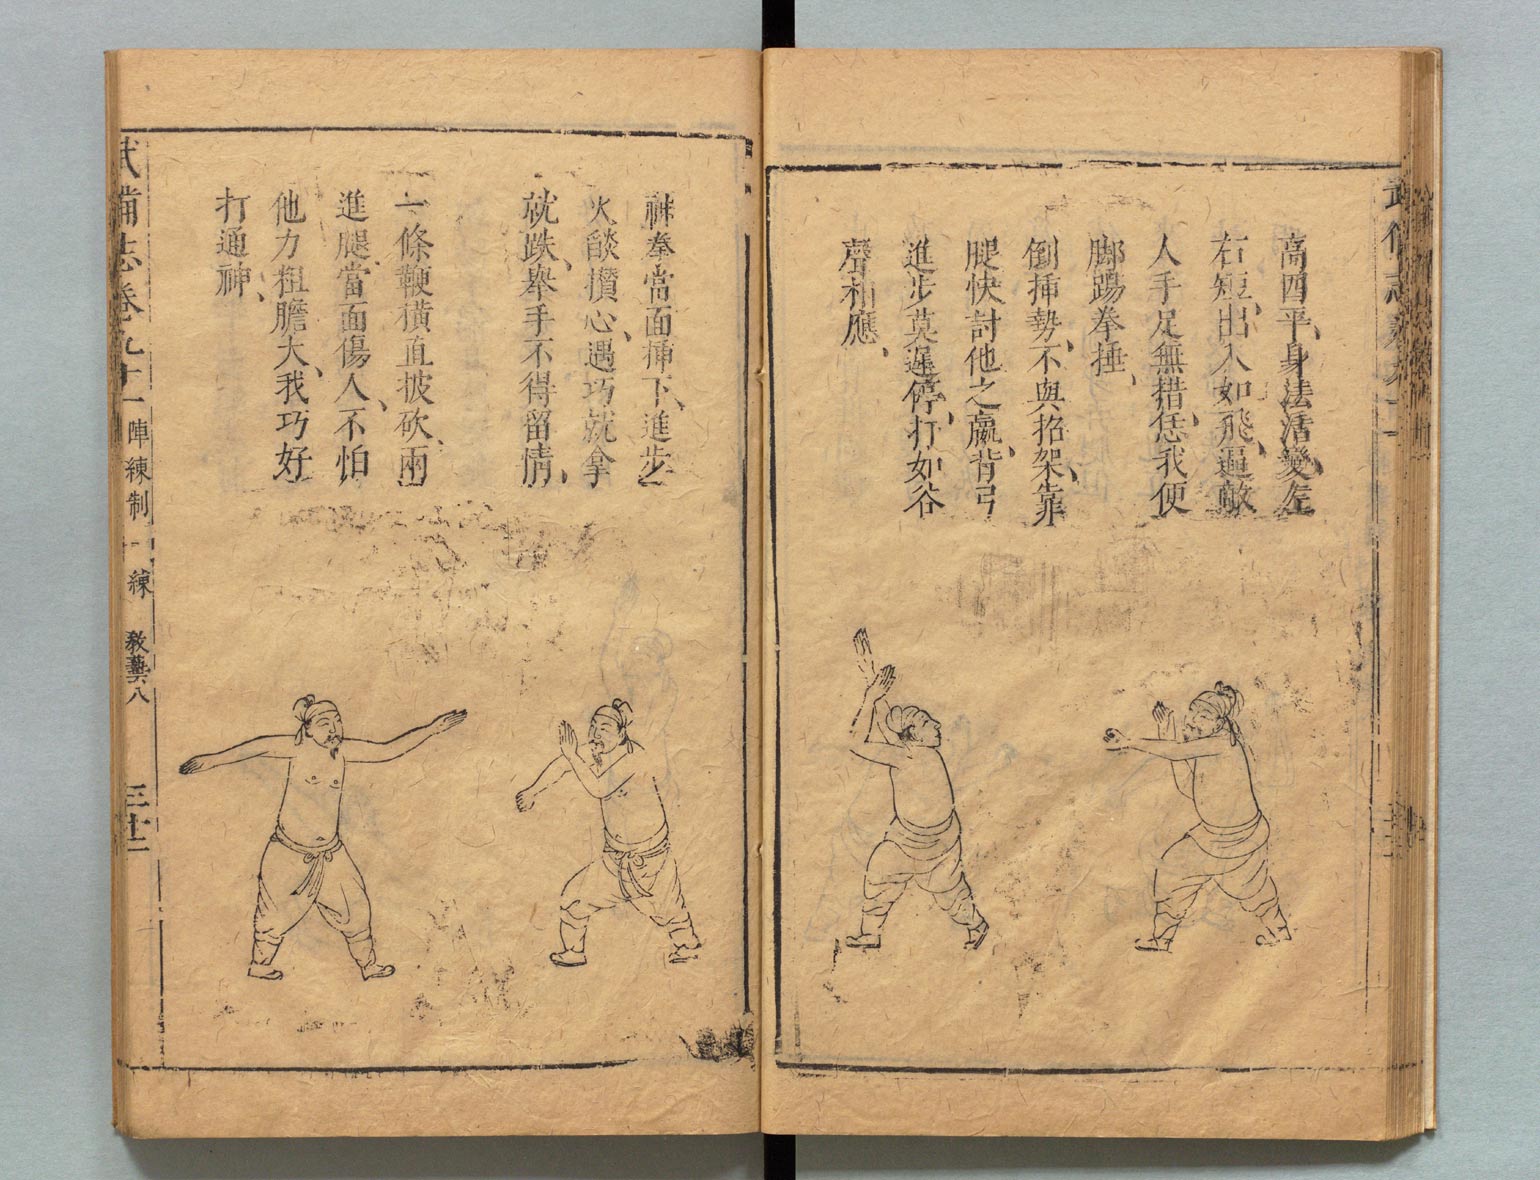 高四平、身法活變、左
右短、出入如飛、逼敵
人手足無措、恁我便
脚踢拳捶、
倒揷勢、不與招架、靠
腿快討他之贏、背弓
進步莫遲停、打如谷
聲相應、
神拳當面揷下、進步
火燄攢心、遇巧就拿
就跌、舉手不得留情、
一條鞭橫直披砍、兩
進腿當面傷人、不怕
他力粗膽大、我巧好
打通神、
武備志卷九十一 陣練制 練 教藝八